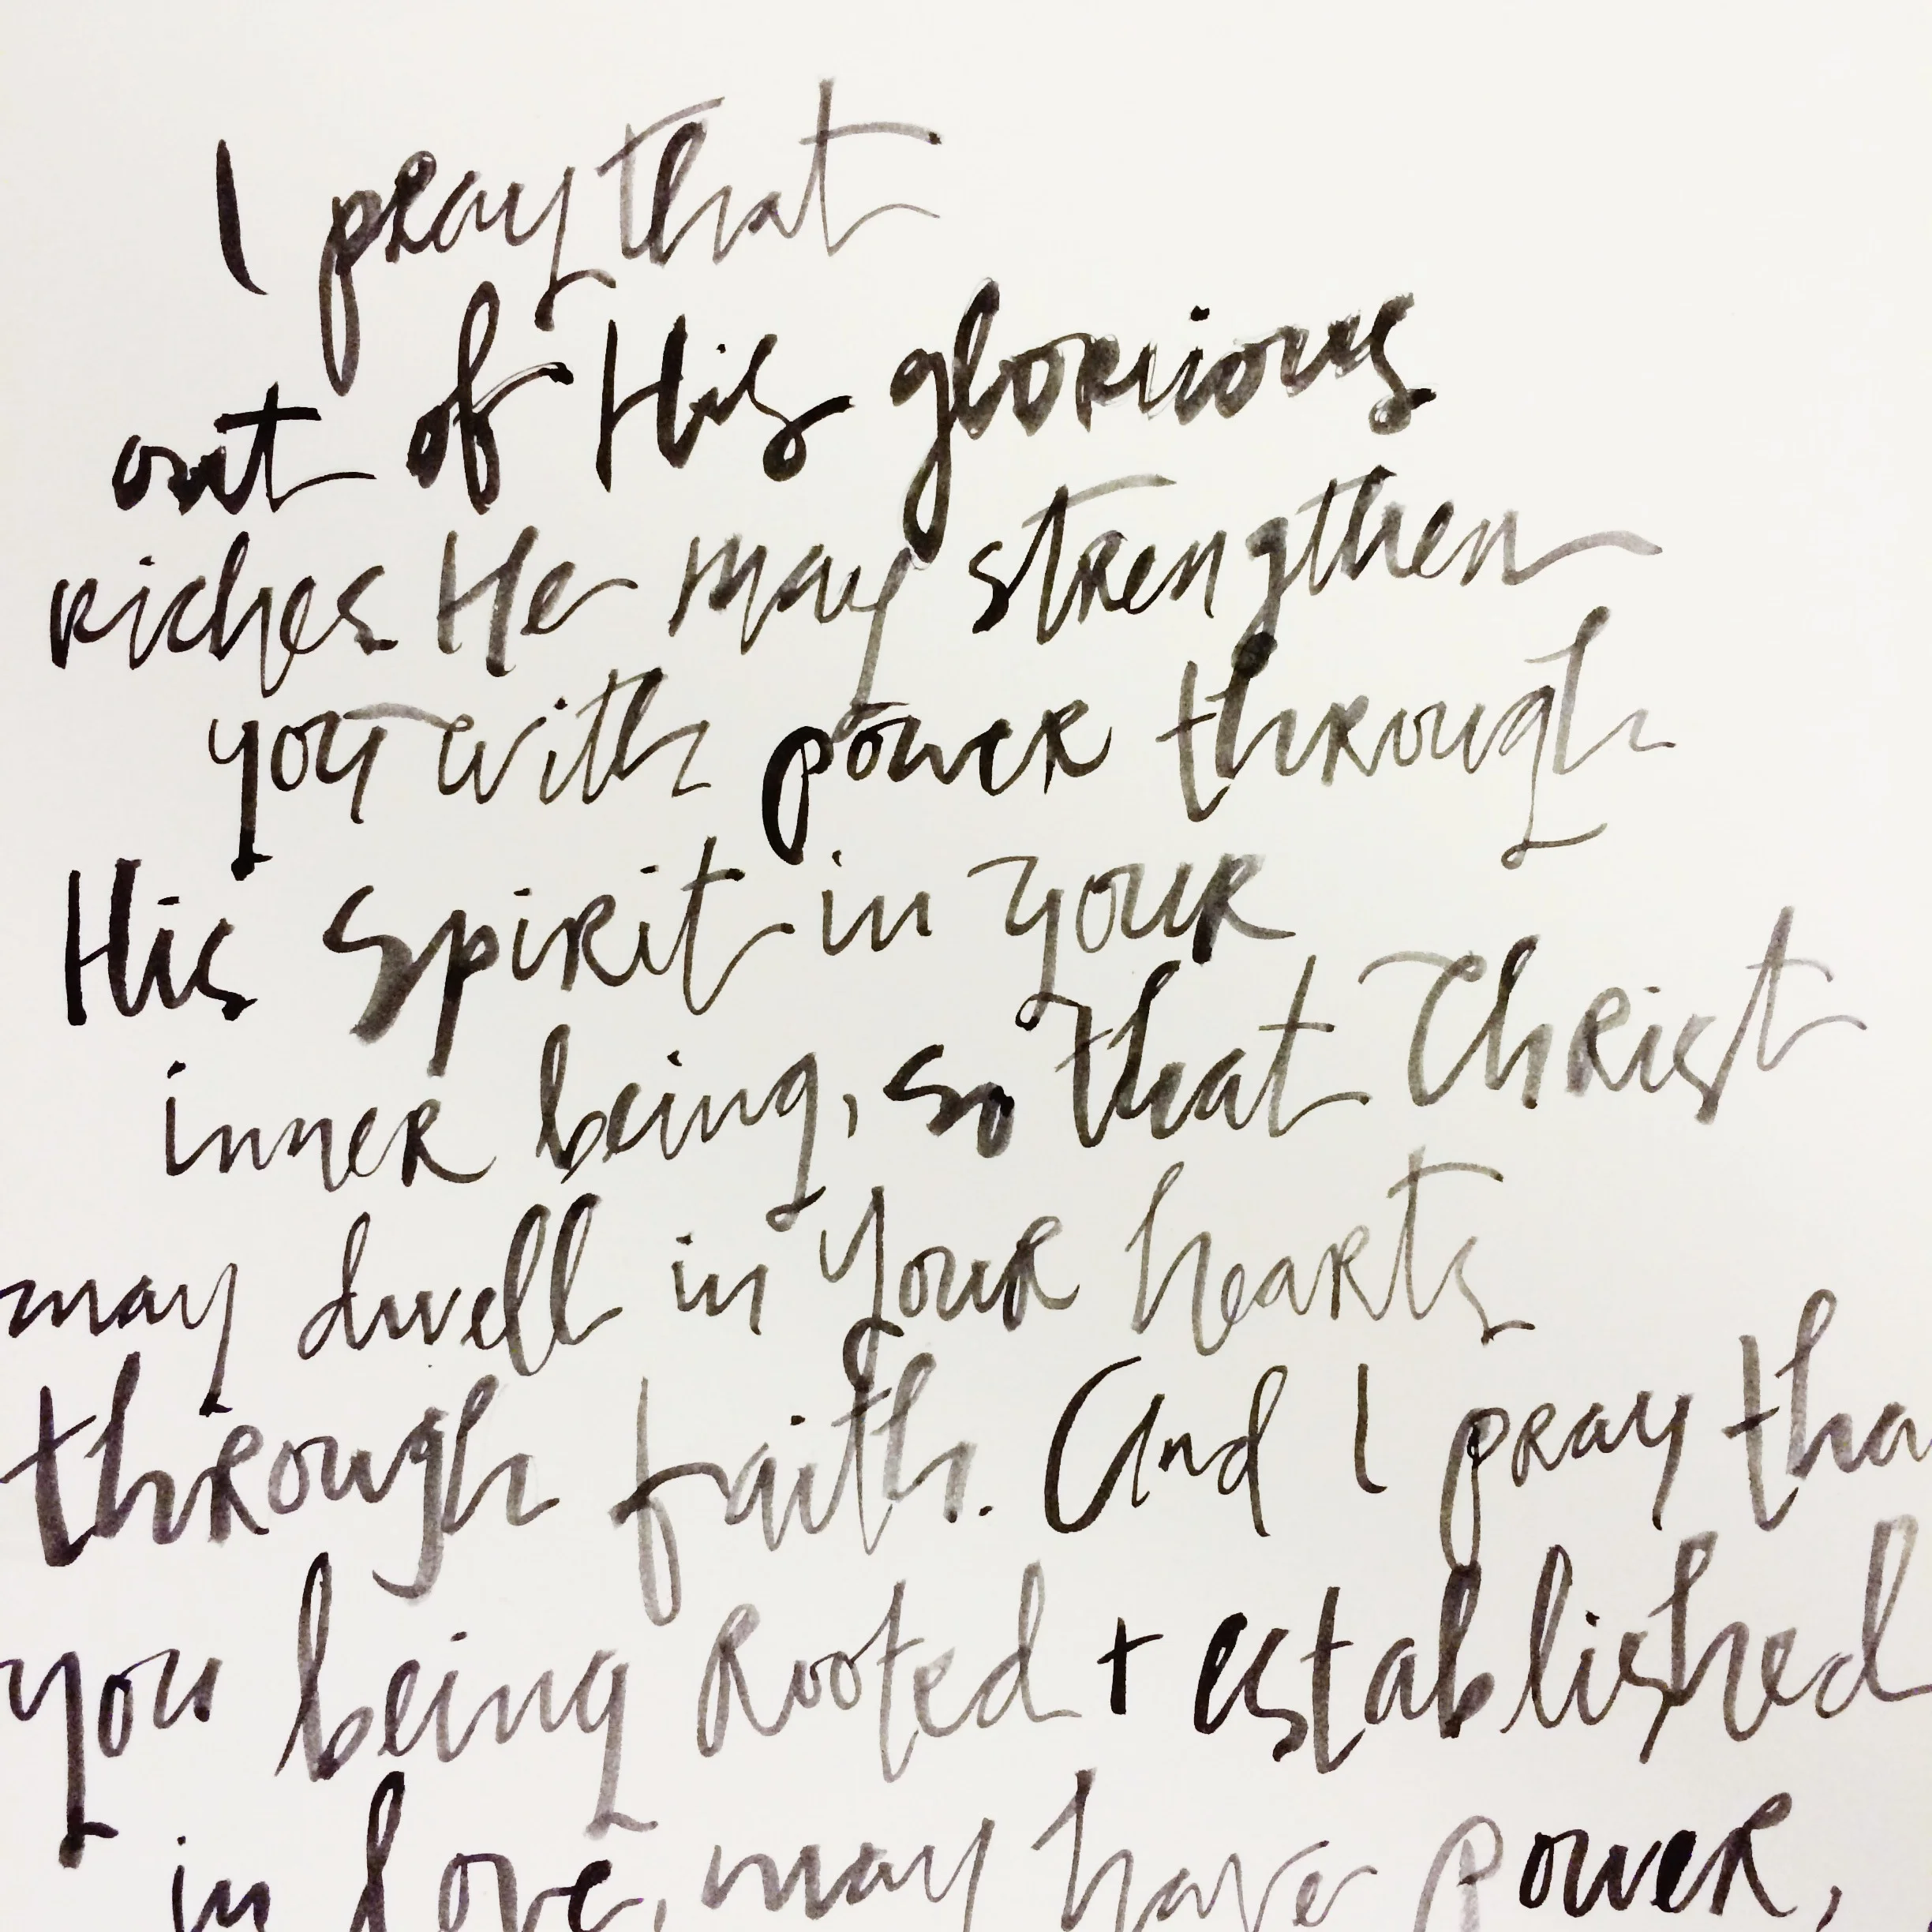 I pray that
out of His glorious
riches He may strengthen
you with power through
His Spirit in your
inner being, so that Christ
may dwell in your hearts
through faith. And I pray tha
you being Rooted + established
in love, may have power,